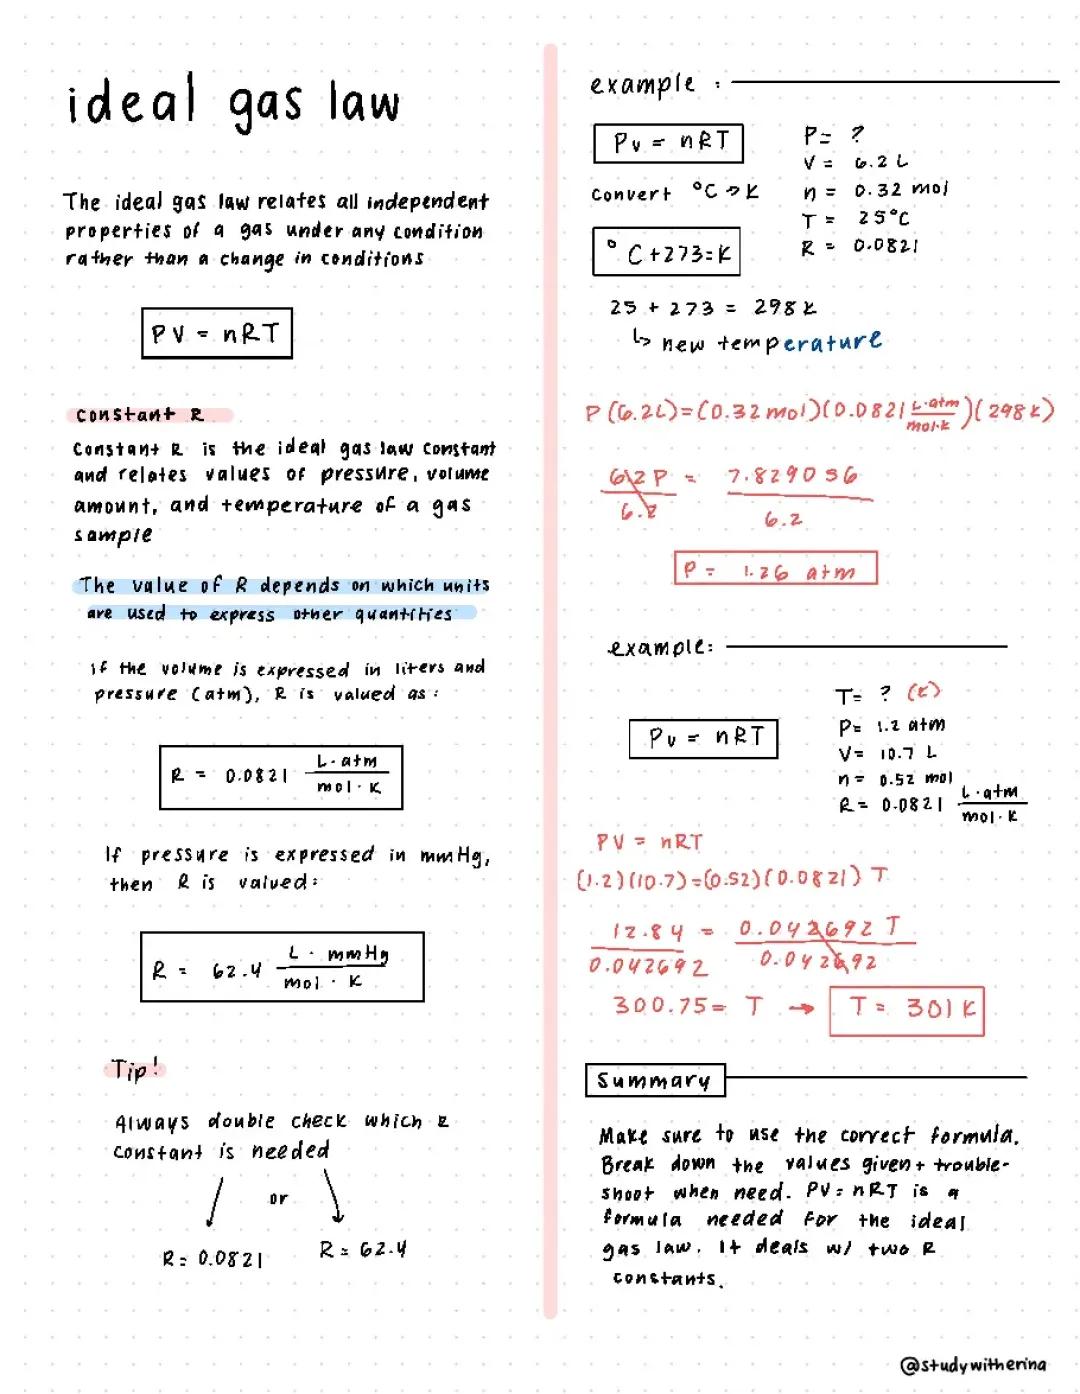 ideal gas law
The ideal gas law relates all independent
properties of a gas under any condition
rather than a change in conditions
PV = nRT
constant R
Constant R is the ideal gas law constant
and relates values of pressure, volume
amount, and temperature of a gas
sample
The value of R depends on which units
are used to express other quantities
if the volume is expressed in liters and
pressure (atm), R is valued as:
R = 0.0821 L·atm / mol·K
If pressure is expressed in mmHg,
then R is valued:
R = 62.4 L·mmHg / mol·K
Tip!
Always double check which R
constant is needed
or
R= 0.0821 R= 62.4
example:
Pv = nRT
Convert °C → K
°C+273=K
P= ?
V= 6.2 L
n= 0.32 mol
T= 25°C
R= 0.0821
25 + 273 = 298K
↳ new temperature
P(6.2L)=(0.32mol)(0.0821 L·atm / mol·K)(298K)
6.2P / 6.2 = 7.829056 / 6.2
P= 1.26 atm
example:
Pv = nRT
T= ? (K)
P= 1.2 atm
V= 10.7 L
n= 0.52 mol
R= 0.0821 L·atm / mol·K
PV = nRT
(1.2)(10.7)=(0.52)(0.0821) T
12.84 / 0.042692 = 0.042692 T / 0.042692
300.75= T → T= 301K
Summary
Make sure to use the correct formula.
Break down the values given + trouble-
shoot when need. PV=nRT is a
formula needed for the ideal
gas law. It deals w/ two R
constants.
@studywitherina